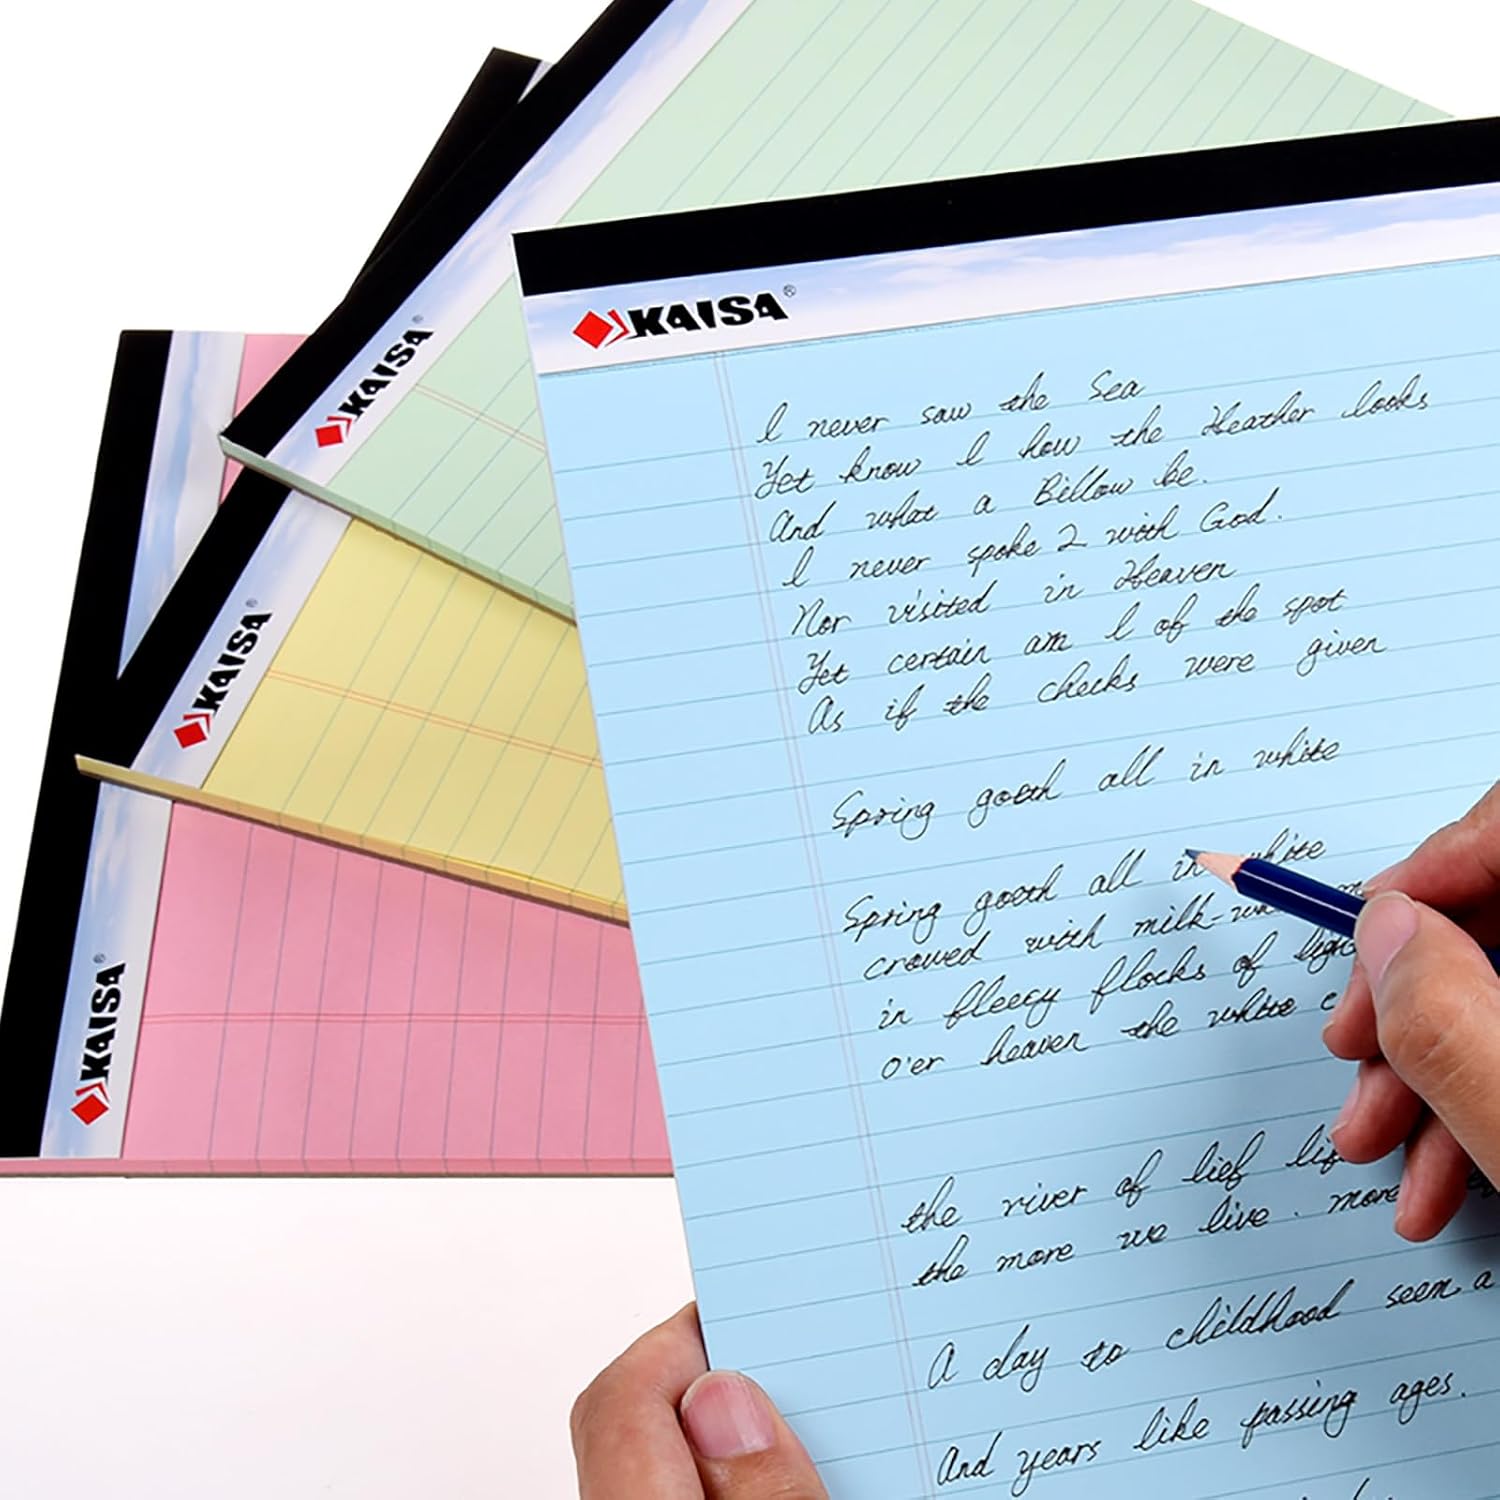 KAISA®
I never saw the Sea
Yet know I how the Heather looks
And what a Billow be.
I never spoke 2 with God.
Nor visited in Heaven
Yet certain am I of the spot
As if the checks were given
Spring goeth all in white
Spring goeth all in white
crowed with milk-
in fleecy flocks of
o'er heaven the white
the river of lief
the more we live. more
A day to childhood seem a
And years like passing ages.
KAISA®
KAISA®
KAISA®